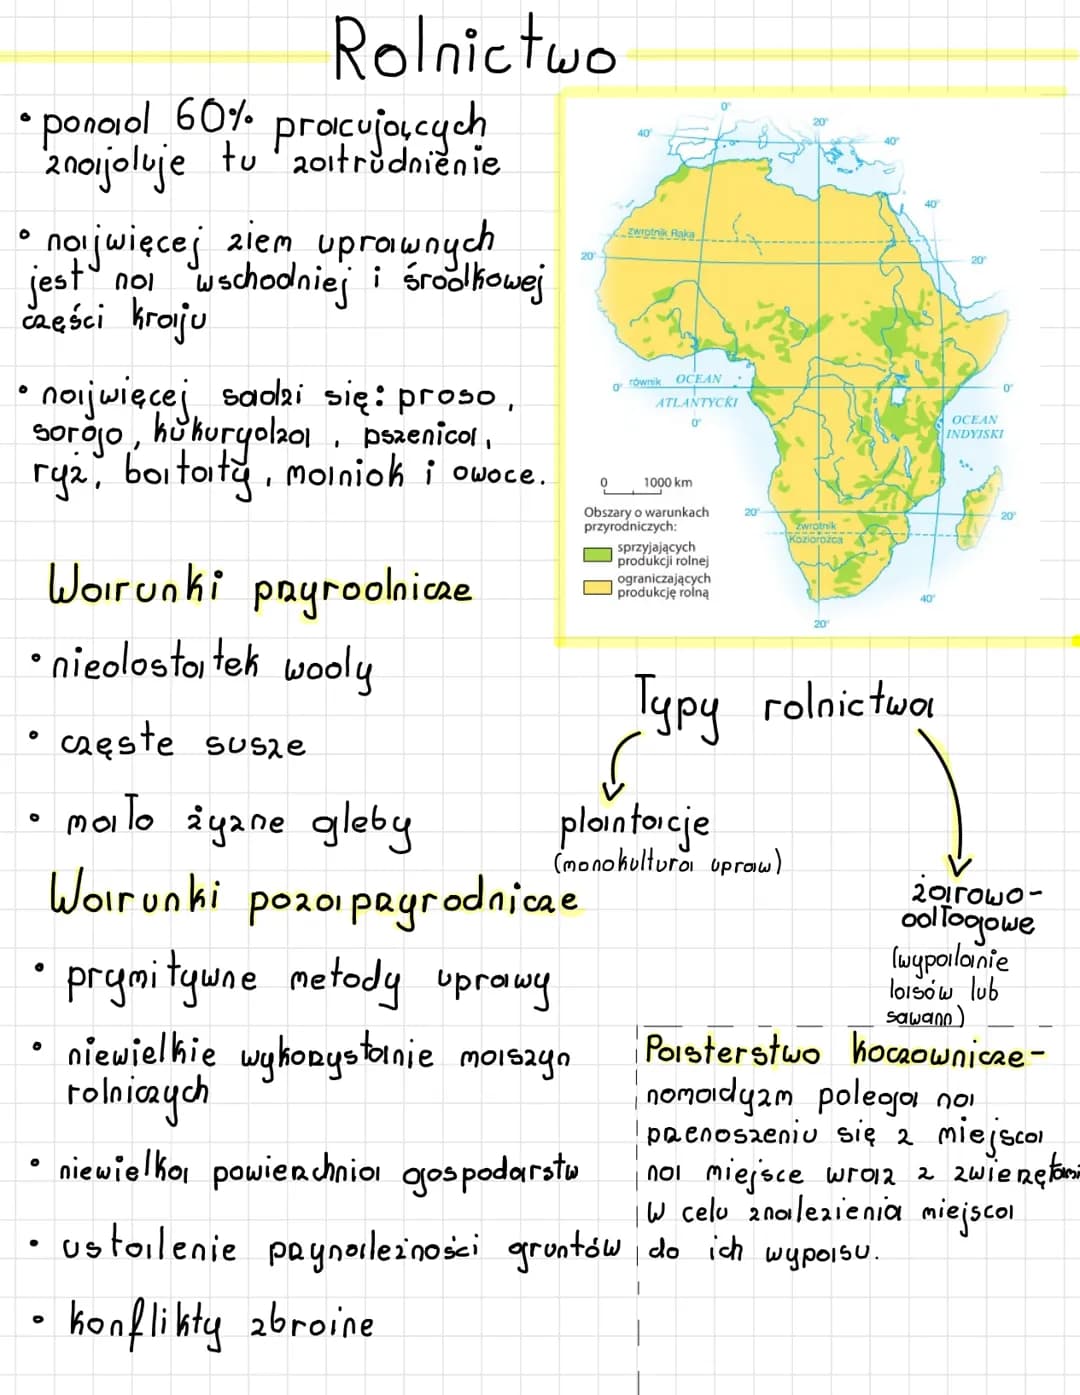 Rolnictwo
• ponad 60% pracujących
znajduje tu zatrudnienie
• najwięcej ziem uprawnych
jest na wschodniej i środkowej
części kraju
• najwięcej sadzi się: proso,
sorgo, kukurydza, pszenica,
ryż, bataty, maniok i owoce.
0°
20°
40°
40°
40°
zwrotnik Raka
20°
20°
0° równik
OCEAN
ATLANTYCKI
0°
0°
OCEAN
INDYJSKI
0 1000 km
Obszary o warunkach
przyrodniczych:
sprzyjających
produkcji rolnej
ograniczających
produkcję rolną
20°
zwrotnik
Koziorożca
20°
40°
20°
Warunki przyrodnicze
• niedostatek wody
• częste susze
• mało żyzne gleby
Typy rolnictwa
plantacje
(monokultura upraw)
żarowo-
odłogowe
(wypalanie
lasów lub
sawann)
Warunki pozaprzyrodnicze
• prymitywne metody uprawy
• niewielkie wykorzystanie maszyn
rolniczych
• niewielka powierzchnia gospodarstw
• ustalenie przynależności gruntów
• konflikty zbrojne
Pasterstwo koczownicze-
nomadyzm polega na
przenoszeniu się z miejsca
na miejsce wraz z zwierzętami
W celu znalezienia miejsca
do ich wypasu.